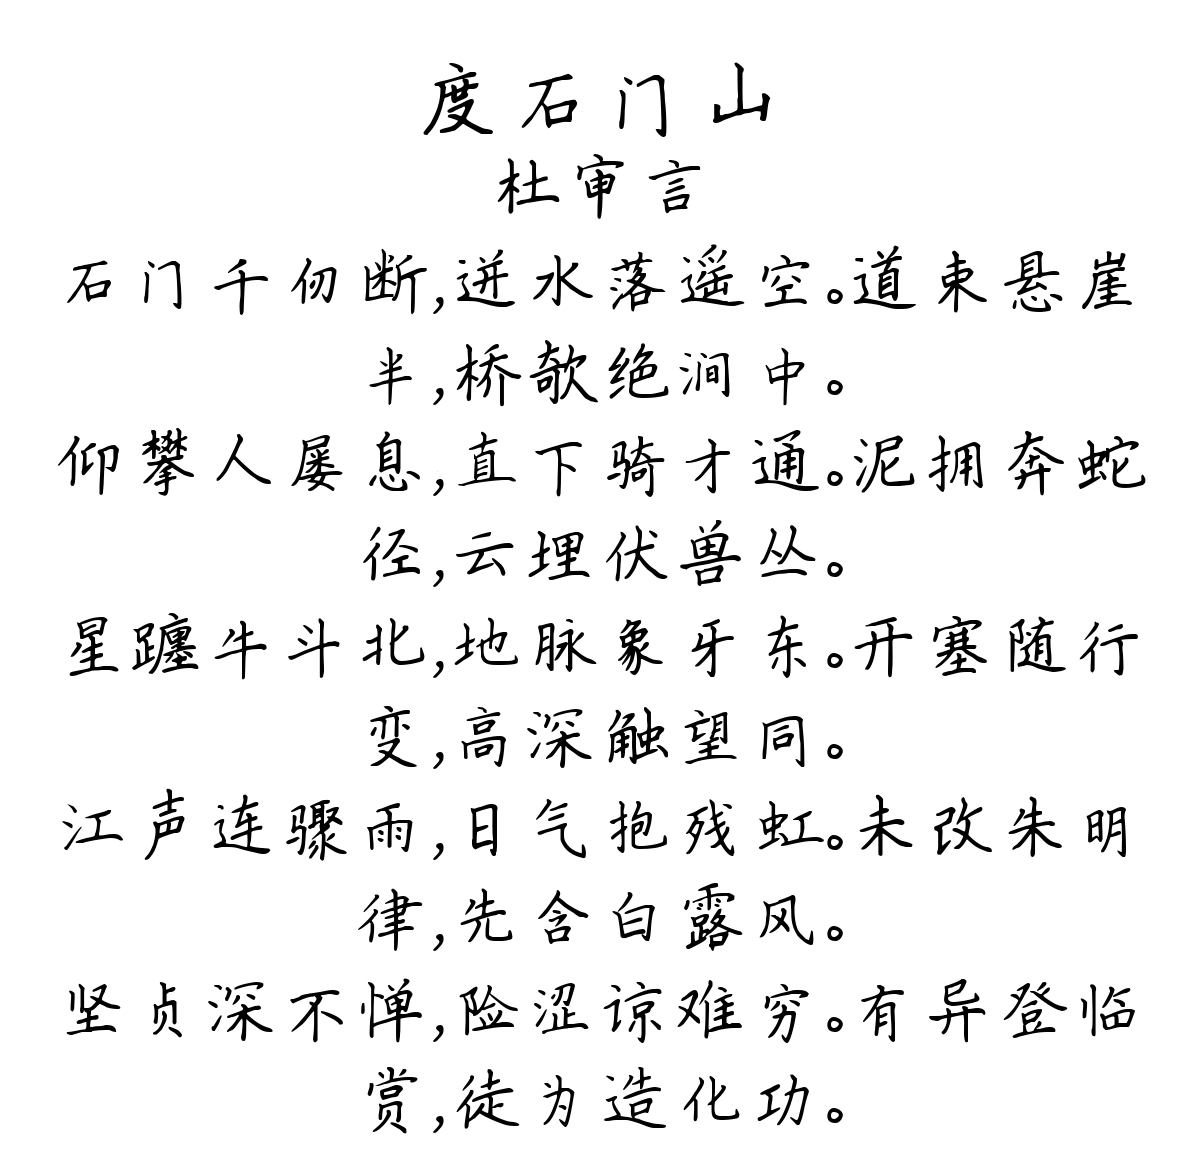 度石门山
杜审言
石门千仞断,迸水落遥空。道束悬崖
半,桥欹绝涧中。
仰攀人屡息,直下骑才通。泥拥奔蛇
径,云埋伏兽丛。
星躔牛斗北,地脉象牙东。开塞随行
变,高深触望同。
江声连骤雨,日气抱残虹。未改朱明
律,先含白露风。
坚贞深不惮,险涩谅难穷。有异登临
赏,徒为造化功。